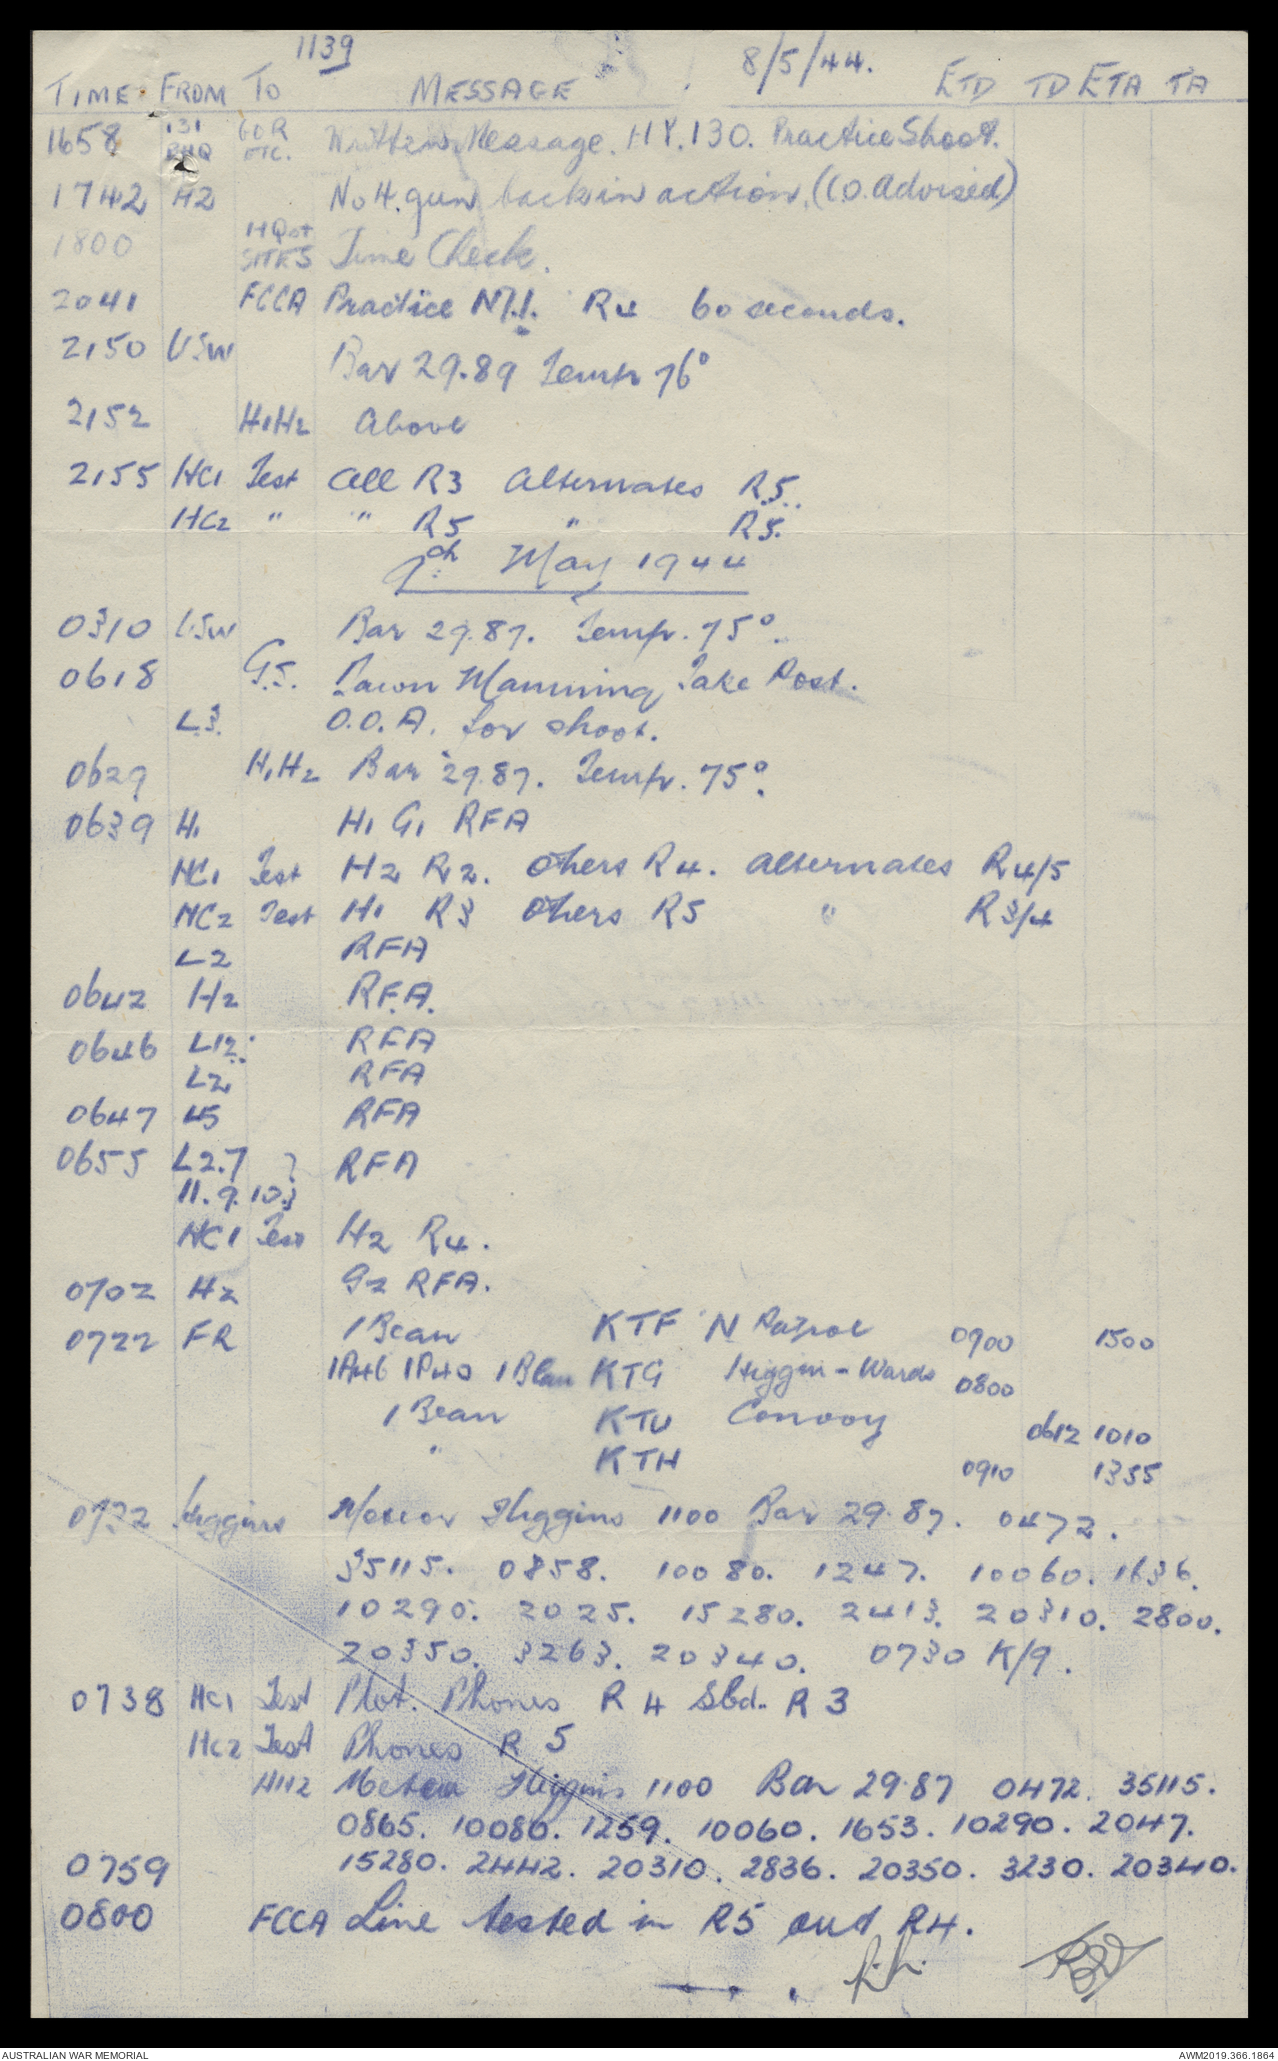 1139
8/5/44.
TIME FROM TO MESSAGE ETD TD ETA TA
1658 131 RHQ GOR ETC. Written Message. HY.130. Practice Shoot.
1742 H2 No 4. gun back in action. (C.O. Advised)
1800 HQ at SITES Time Check.
2041 FCCA Practice N.1. R4 60 seconds.
2150 USW Bar 29.89 Temp 76°
2152 H1H2 Above
2155 HC1 Test All R3 Alternates R5
HC2 " " R5 " R5.
9th May 1944
0310 USW Bar 29.87. Temp. 75°.
0618 G.S. Dawn Manning Take Post.
L3. O.O.A. for shoot.
0629 H1H2 Bar 29.87. Temp. 75°.
0639 H1 H1 G1 RFA
HC1 Test H2 R2. Others R4. Alternates R4/5
HC2 Test H1 R3 Others R5 " R3/4
L2 RFA
0642 H2 RFA.
0646 L12. RFA
L2 RFA
0647 L5 RFA
0655 L2.7 RFA
11.9.10.
HC1 Test H2 R4.
0702 H2 G2 RFA.
0722 FR 1 Beau KTF N Patrol 0900 1500
1P46 1P40 1Blau KTG Higgin - Wards 0800
1 Beau KTU Convoy 0612 1010
" KTH 0910 1355
0732 Higgins Meteor Higgins 1100 Bar 29.87. 0472.
35115. 0858. 10080. 1247. 10060. 1636.
10290. 2025. 15280. 2413. 20310. 2800.
20350. 3263. 20340. 0730 K/9.
0738 HC1 Test Plot. Phones R4 Sbd. R3
HC2 Test Phones R 5
H1H2 Meteor Higgins 1100 Bar 29.87 0472. 35115.
0865. 10080. 1259. 10060. 1653. 10290. 2047.
0759 15280. 2442. 20310. 2836. 20350. 3230. 20340.
0800 FCCA Line tested in R5 out R4.
AUSTRALIAN WAR MEMORIAL
AWM2019.366.1864